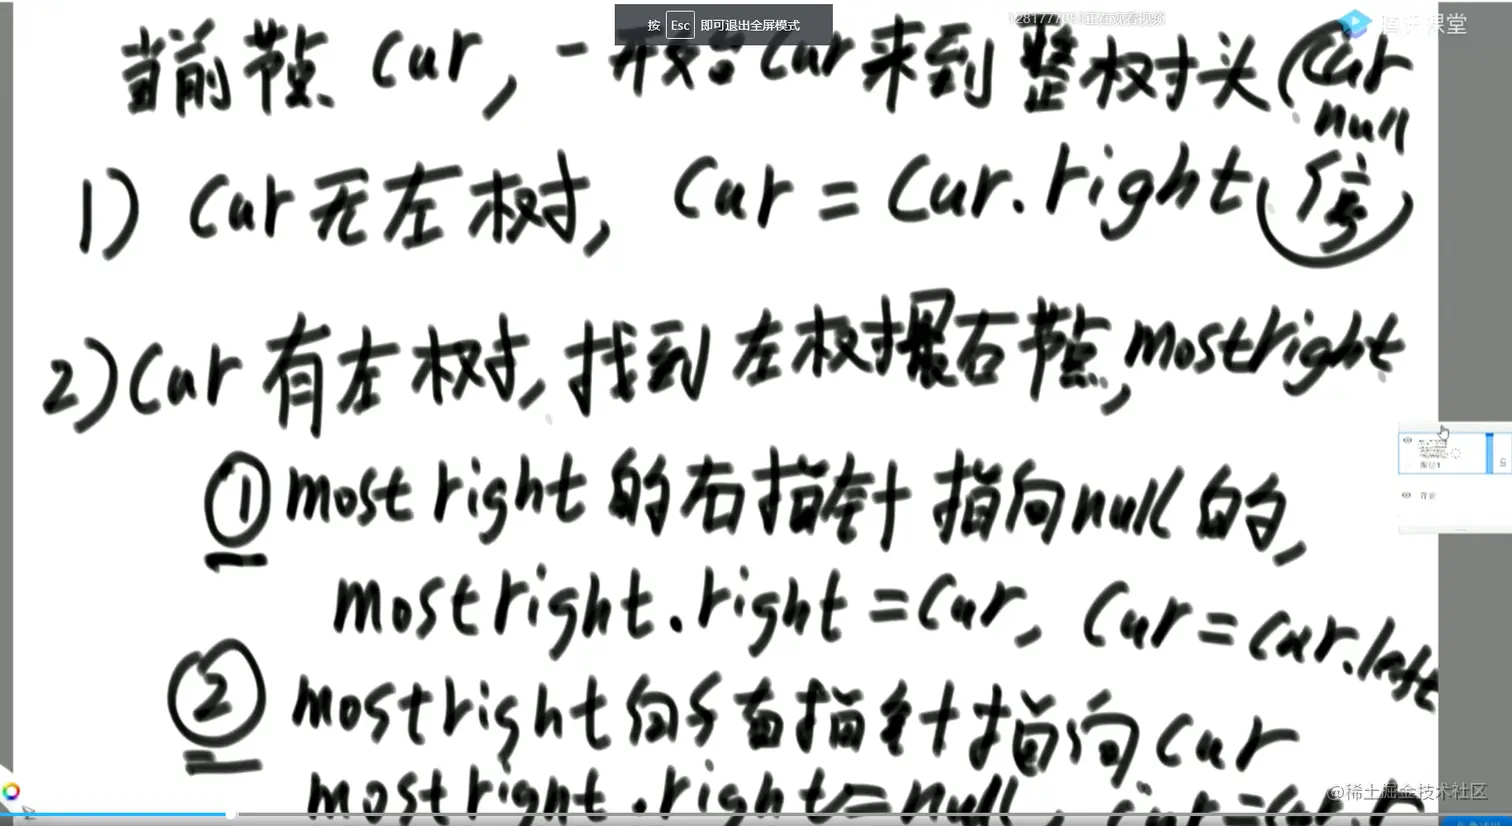 按 Esc 即可退出全屏模式
正在观看视频
腾讯课堂
当前节点 cur, 一开始cur来到整树头 (cur
null
1) cur无左树, cur = cur.right 停)
2) cur 有左树, 找到左树最右节点, mostright
① mostright 的右指针指向null的,
mostright.right = cur, cur = cur.left
② mostright的右指针指向cur
mostright.right = null, cur = cur.r
@稀土掘金技术社区